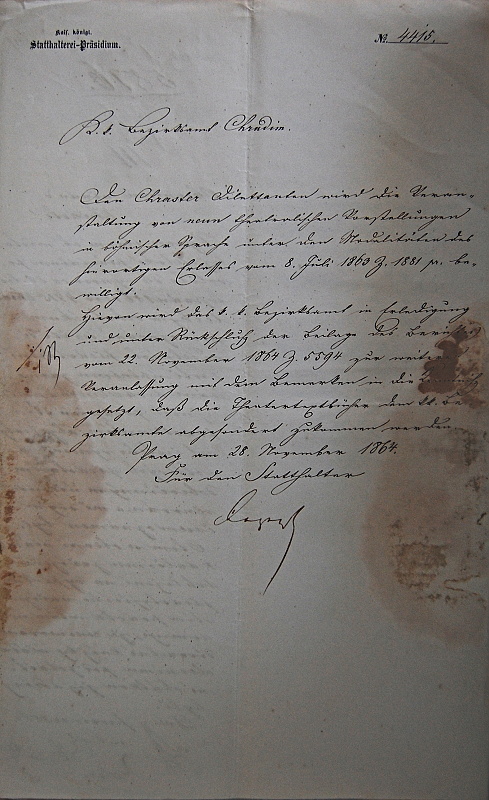 Kais. königl.
Statthalterei-Präsidium.
№ 4415.
K. k. Bezirksamt Chrudim.
Den Chraster Dilettanten wird die Veran-
staltung von neun theatralischen Vorstellungen
in böhmischer Sprache unter den Modalitäten des
hierortigen Erlasses vom 8. Juli 1863 Z. 1881 pr. be-
willigt.
Hievon wird das k. k. Bezirksamt in Erledigung
und unter Rückschluß der Beilage des Berichtes
vom 22. November 1864 Z. 5594 zur weiteren
Veranlassung mit dem Bemerken in die Kenntniß
gesetzt, daß die Theatertextbücher dem k. k. Be-
zirksamte abgesondert zukommen werden.
Prag am 28. November 1864.
Für den Statthalter